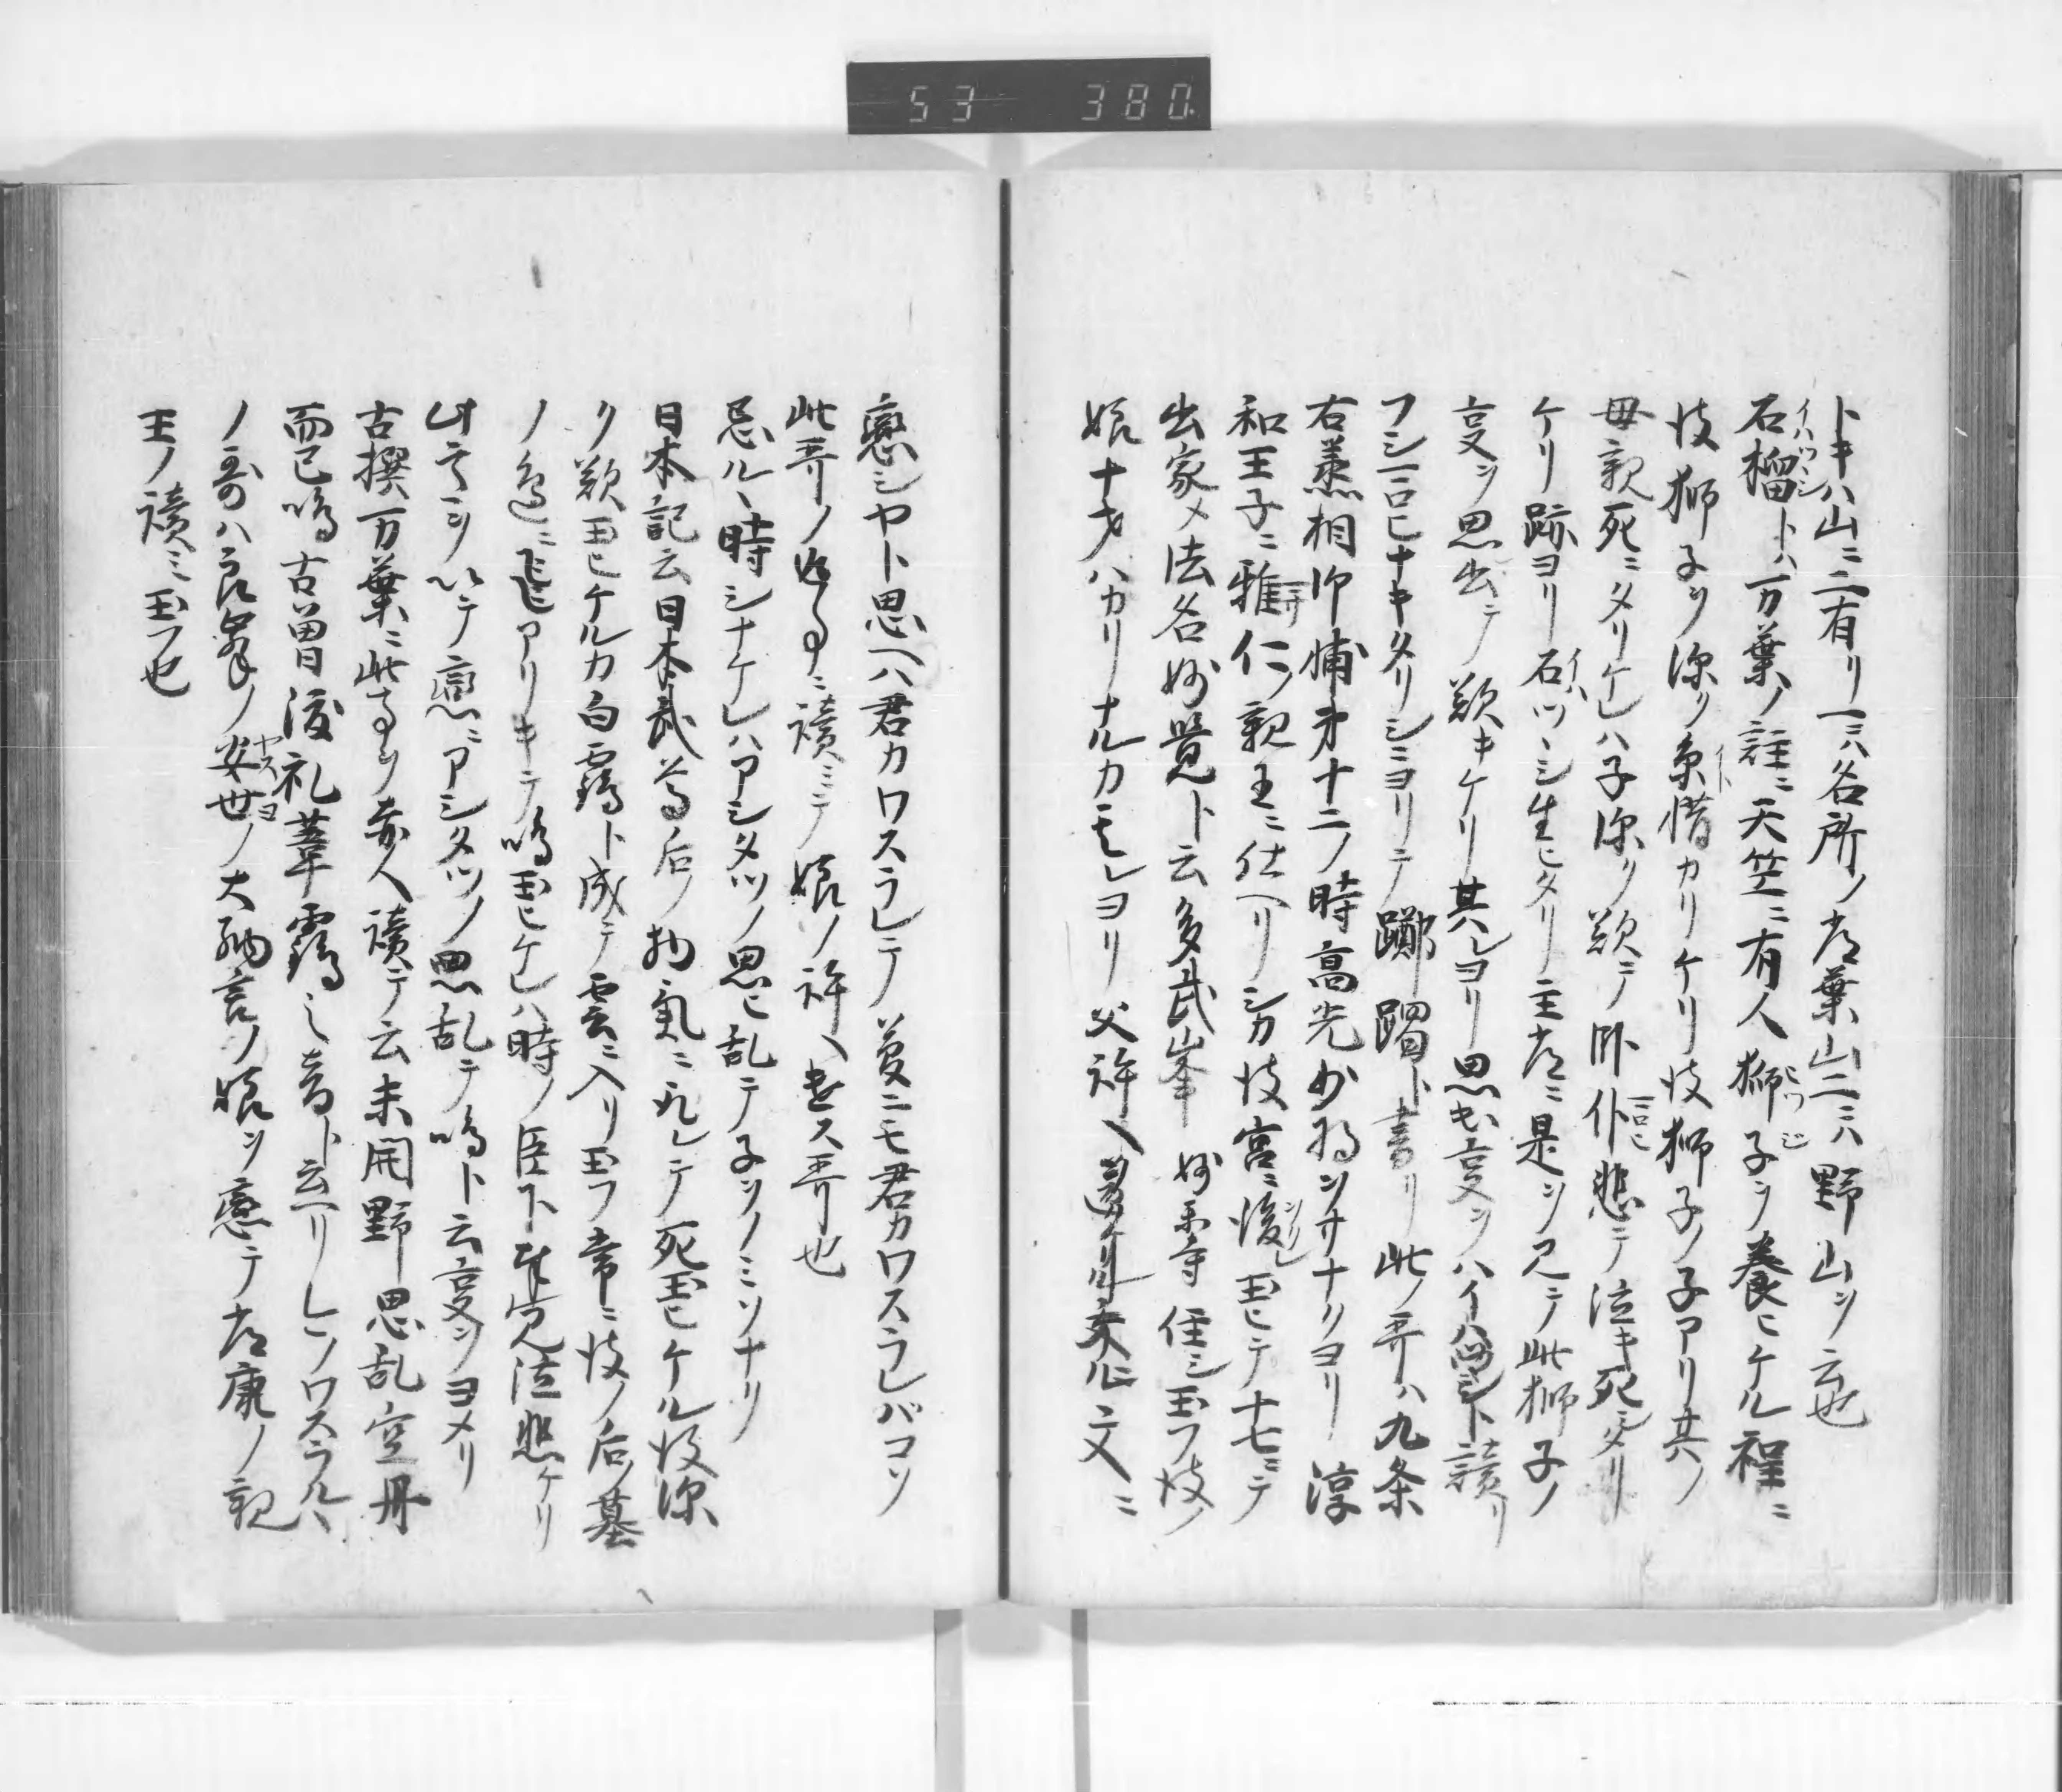 53 380
トキハ山ニ二有リ一ニハ名所ノ常葉山二ニハ野山ヲ云也
石榴トハ万葉ノ註ニ天竺ニ有人獅子ヲ養ヒケル程ニ
彼獅子ヲ深ク糸惜カリケリ彼獅子ノ子アリ其ノ
母親死ニタリケレハ子深ク歎テ臥仆悲テ泣キ死ニタリ
ケリ跡ヨリ石ツヽシ生ヒタリ主常ニ是ヲ見テ此獅子ノ
事ヲ思出テ歎キケリ其レヨリ思出事ヲハイハツヽシト讀リ
フシコロヒナキタリシニヨリテ躑躅ト書リ此ノ哥ハ九条
右丞相師輔第十二ノ時高光少将ヲサナクヨリ淳
和王子ニ雅仁ノ親王ニ仕ヘリシカ彼宮ニ後レ玉ヒテ十七ニテ
出家メ法名妙覺ト云多武峯妙楽寺住シ玉フ彼ノ
娘十才ハカリナルカモレヨリ父許ヘ文ニ
戀シヤト思ヘハ君カワスラレテ夢ニモ君カワスラレバコソ
此哥ノ返事ニ讀ミテ娘ノ許ヘ遣ス哥也
忘ルヽ時シナケレハアシタツノ思ヒ乱テ子ヲノミソナク
日本記云日本武尊后ノ物氣ニ死レテ死玉ヒケル彼深
ク歎玉ヒケルカ白鶴ト成テ雲ニ入リ玉フ常ニ彼ノ后ノ墓
ノ邊ニ飛アリキテ鳴玉ヒケレハ時ノ臣下皆見泣悲ケリ
此コヽロヲ以テ戀ニアシタツノ思乱テ鳴ト云事ヲヨメリ
古撰万葉ニ此事ヲ赤人讀テ云未開野思乱空毋
而已鳴古曽渡礼葦鶴之音ト云リヒトノワスラルヽ
ノ哥ハ良峯ノ安世ノ大納言ノ娘ヲ戀テ常康ノ親
王ノ讀ミ玉フ也